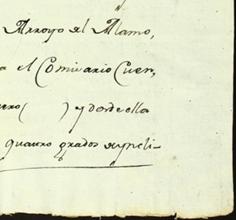 Arroyo del Alamo,
a el Comisario Cuer,
ero ( ) y desde ella
quatro grados